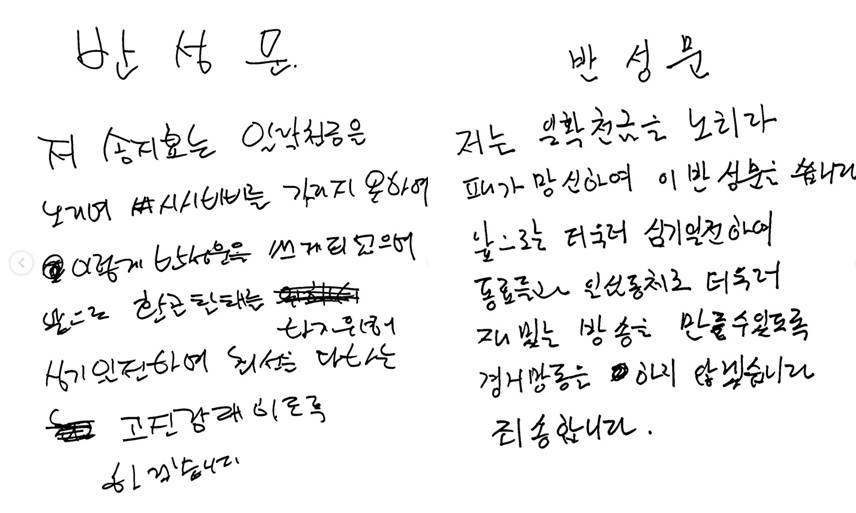 반 성 문.
저 송지효는 일락천금을
노리며 시시비비를 가리지 못하여
이렇게 반성문을 쓰게 되었으며
앞으로 환골탈태를
하기위해
심기일전하여 최선을 다하는
고진감래 이도록
하겠습니다
반 성 문
저는 일확천금을 노리다
패가망신하여 이 반성문을 씁니다
앞으로는 더욱더 심기일전하여
동료들과 일심동체로 더욱더
재밌는 방송을 만들수있도록
경거망동은 하지 않겠습니다
죄송합니다.